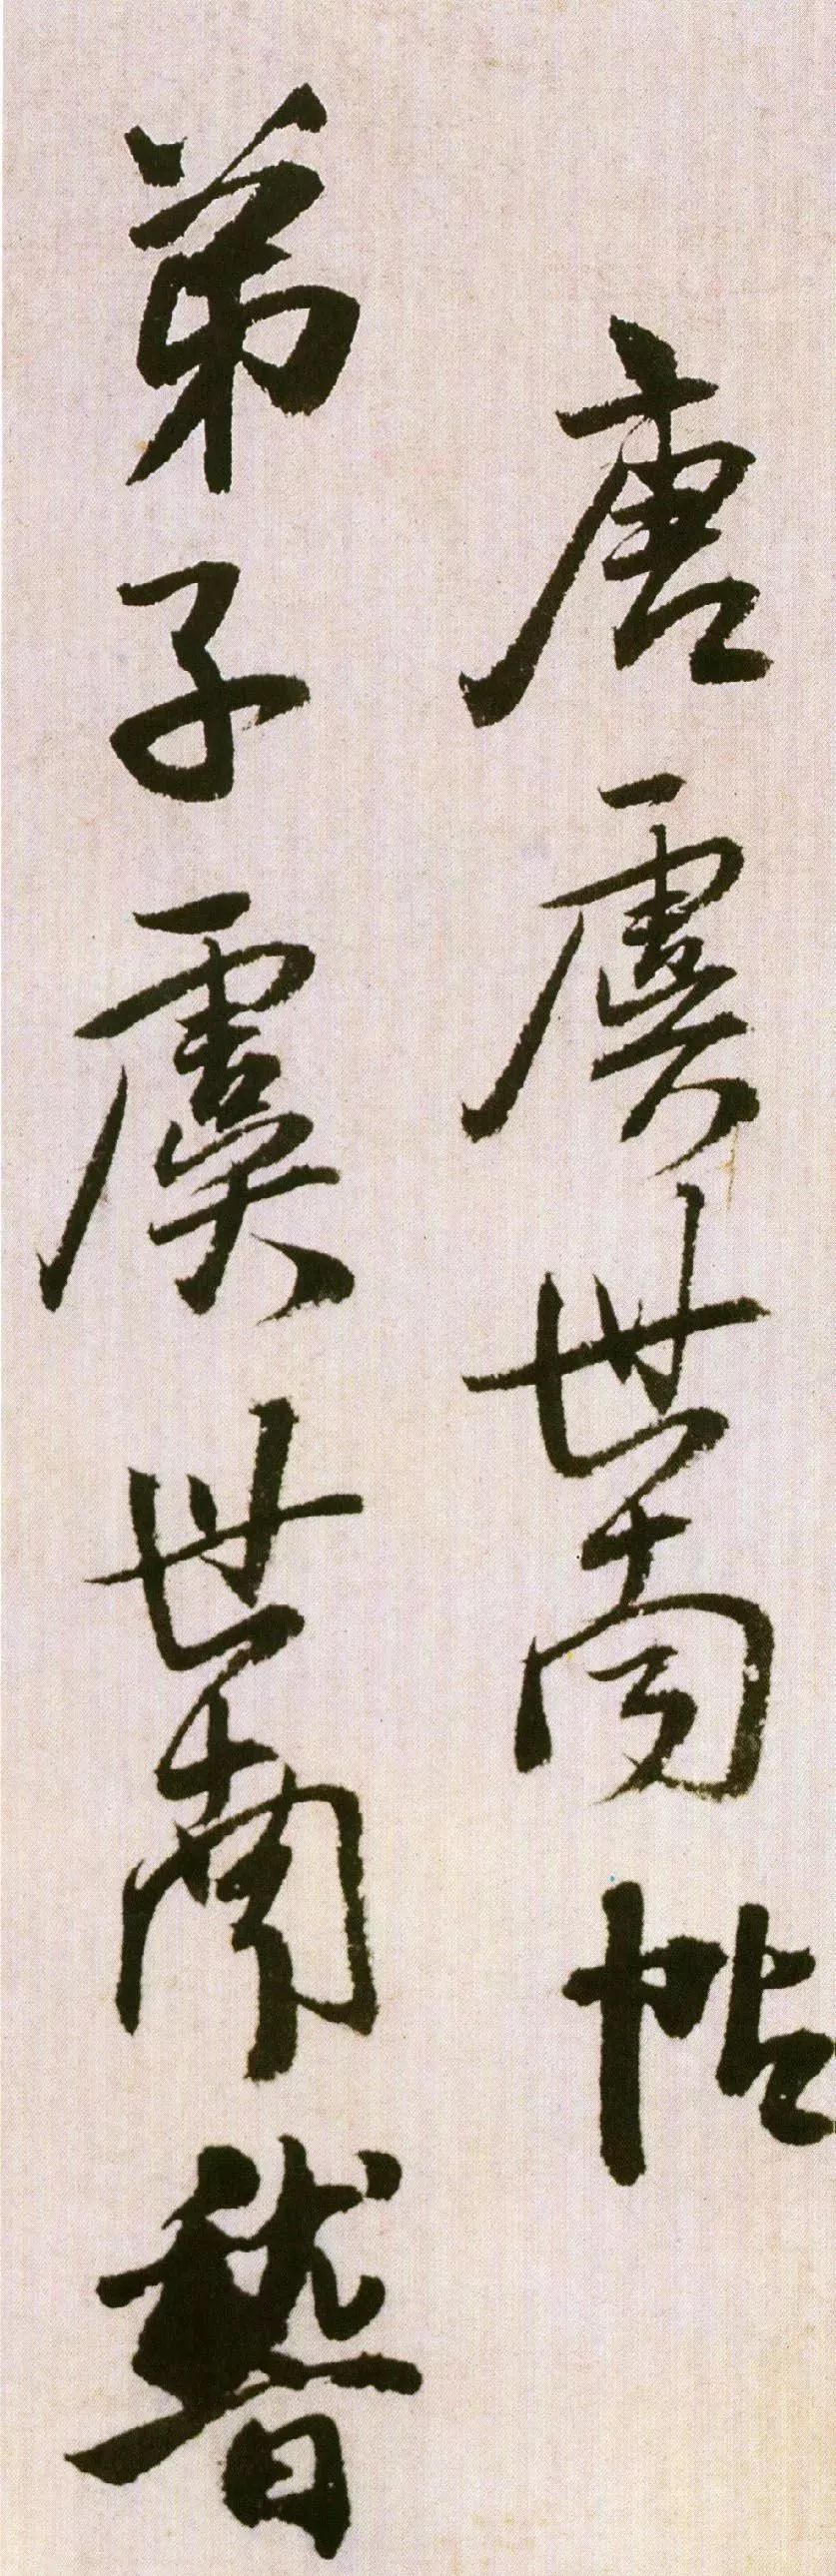 唐虞世南帖
弟子虞世南稽